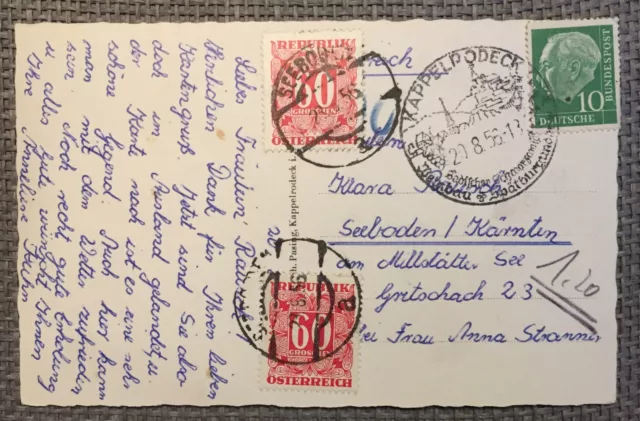 Liebes Fräulein Rausch
Herzlichen Dank für Ihren lieben
Kartengruß. Jetzt sind Sie also
doch im Ausland gelandet, u
der Karte nach ist es eine sehr
schöne Gegend. Auch hier kann
man mit dem Wetter zufrieden
sein. Noch recht gute Erholung
u. alles Gute wünscht Ihnen
Ihre Anneliese
Pasing, Kappelrodeck i.
REPUBLIK
60
GROSCHEN
ÖSTERREICH
SEEBODEN
REPUBLIK
60
GROSCHEN
ÖSTERREICH
KAPPELRODECK
20.8.56-13
10
DEUTSCHE
BUNDESPOST
Klara Rausch
Seeboden / Kärnten
am Millstätter See
Gritschach 23
bei Frau Anna Stranner
1.20